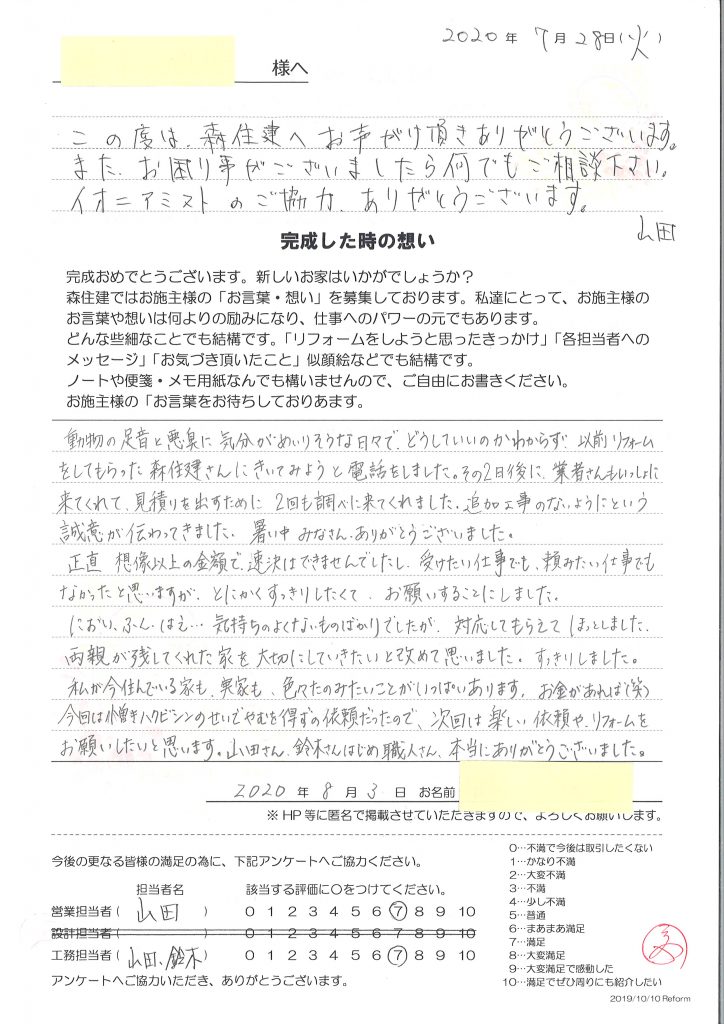 2020年 7月28日(火)
様へ
この度は、森住建へお声がけ頂きありがとうございます。
また、お困り事がございましたら何でもご相談下さい。
イオニアミストのご協力、ありがとうございます。
山田
完成した時の想い
完成おめでとうございます。新しいお家はいかがでしょうか？
森住建ではお施主様の「お言葉・想い」を募集しております。私達にとって、お施主様の
お言葉や想いは何よりの励みになり、仕事へのパワーの元でもあります。
どんな些細なことでも結構です。「リフォームをしようと思ったきっかけ」「各担当者への
メッセージ」「お気づき頂いたこと」似顔絵などでも結構です。
ノートや便箋・メモ用紙なんでも構いませんので、ご自由にお書きください。
お施主様の「お言葉をお待ちしておりあます。
動物の足音と悪臭に気分がめいりそうな日々で、どうしていいのかわからず 以前リフォーム
をしてもらった森住建さんにきいてみようと電話をしました。その2日後に、業者さんもいっしょに
来てくれて、見積りを出すために 2回も調べに来てくれました。追加工事のないようにという
誠意が伝わってきました。暑い中 みなさん、ありがとうございました。
正直 想像以上の金額で、速決はできませんでしたし、受けたい仕事でも、頼みたい仕事でも
なかったと思いますが、とにかくすっきりしたくて、お願いすることにしました。
におい、ふん、はえ… 気持ちのよくないものばかりでしたが、対応してもらえて ほっとしました。
両親が残してくれた家を大切にしていきたいと改めて思いました。すっきりしました。
私が今住んでいる家も、実家も、色々たのみたいことがいっぱいあります。お金があれば(笑)
今回は小憎きハクビシンのせいでやむを得ずの依頼だったので、次回は楽しい依頼や、リフォームを
お願いしたいと思います。山田さん、鈴木さんはじめ職人さん、本当にありがとうございました。
2020年 8月 3日 お名前
※HP等に匿名で掲載させていただきますので、よろしくお願いします。
今後の更なる皆様の満足の為に、下記アンケートへご協力ください。
担当者名 該当する評価に○をつけてください。
営業担当者( 山田 ) 0 1 2 3 4 5 6 7 8 9 10
設計担当者( ) 0 1 2 3 4 5 6 7 8 9 10
工務担当者( 山田、鈴木 ) 0 1 2 3 4 5 6 7 8 9 10
アンケートへご協力いただき、ありがとうございます。
0…不満で今後は取引したくない
1…かなり不満
2…大変不満
3…不満
4…少し不満
5…普通
6…まあまあ満足
7…満足
8…大変満足
9…大変満足で感動した
10…満足でぜひ周りにも紹介したい
2019/10/10 Reform